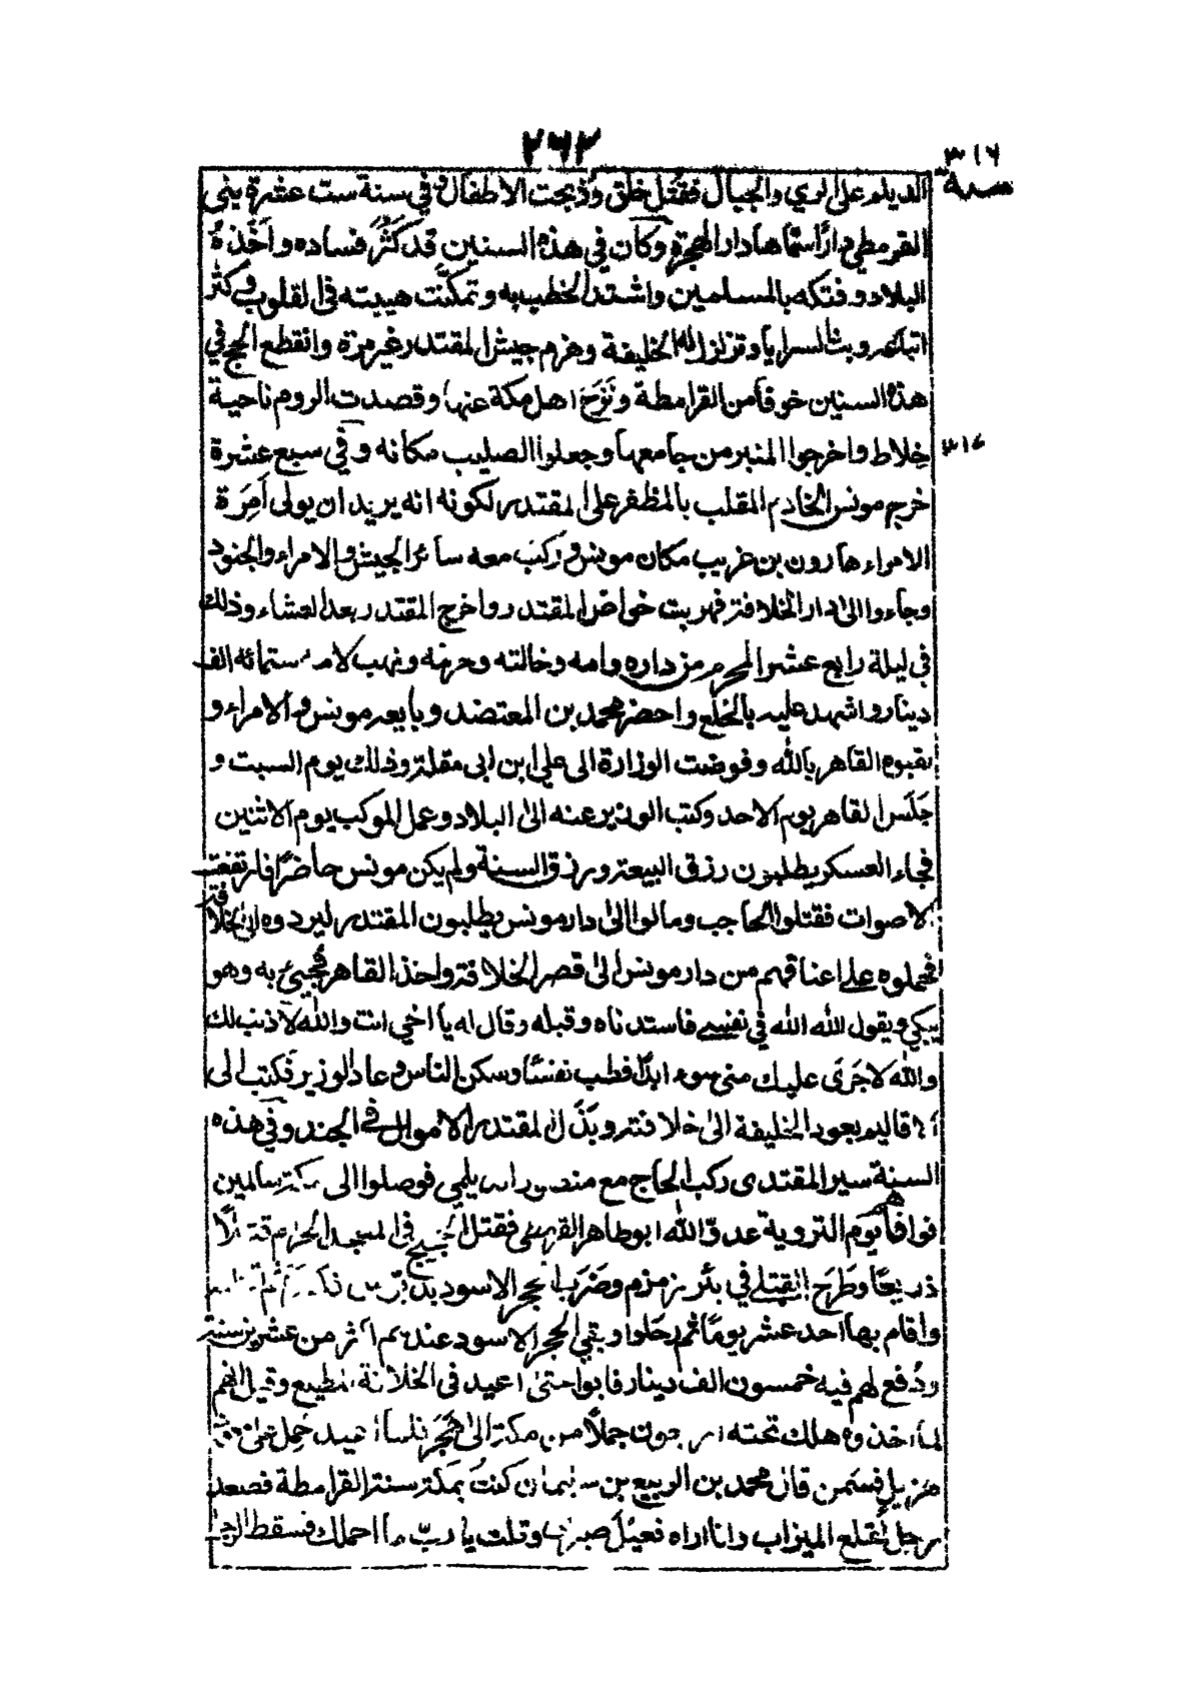 ٢٦٣
سنة ٣١٦
الديلم على الري والجبال فقُتل خلق وذُبحت الاطفال وفي سنة ست عشرة بنى
القرمطي دارًا سماها دار الهجرة وكان في هذه السنين قد كَثُر فساده واَخْذُهُ
البلاد وفتكه بالمسلمين واشتد الخطب به وتمكّنت هيبته في القلوب وكثر
اتباعه وبث السرايا وتزلزل له الخليفة وهزم جيش المقتدر غير مرة وانقطع الحج في
هذه السنين خوفا من القرامطة ونَزَحَ اهل مكة عنها وقصدت الروم ناحية
خِلاط واخرجوا المنبر من جامعها وجعلوا الصليب مكانه وفي سبع عشرة
٣١٧
خرج مونس الخادم المقلب بالمظفر على المقتدر لكونه انه يريد ان يولى اَمِرَة
الامراء هارون بن غريب مكان مونس وركب معه سائر الجيش والامراء والجنود
وجاءوا الى دار الخلافة فهربت خواصّ المقتدر واخرج المقتدر بعد العشاء وذلك
في ليلة رابع عشر المحرم من داره وامه وخالته وحرمه ونهب لامه ستمائه الف
دينار واشهد عليه بالخلع واحضر محمد بن المعتضد وبايعه مونس والامراء و
لقبوه القاهر بالله وفوضت الوزارة الى علي ابن ابى مقلة وذلك يوم السبت و
جَلَسَ القاهر يوم الاحد وكتب الوزير عنه الى البلاد وعمل الموكب يوم الاثنين
فجاء العسكر يطلبون رزق البيعة ورزق السنة ولم يكن مونس حاضرًا فارتفعت
الاصوات فقتلوا الحاجب ومالوا الى دار مونس يطلبون المقتدر ليردوه الى الخلافة
فحملوه على اعناقهم من دار مونس الى قصر الخلافة واخذ القاهر فجيئ به وهو
يبكي ويقول الله الله في نفسي فاستدناه وقبله وقال له يا اخي انت والله لا ذنب لك
والله لا جَرَى عليك مني سوء ابدًا فطب نفسًا وسكن الناس وعاد الوزير فكتب الى
الاقاليم بعود الخليفة الى خلافته وبَذَلَ المقتدر الاموال في الجند وفي هذه
السنة سير المقتدى ركب الحاج مع منصور الديلمي فوصلوا الى مكة سالمين
فوافاهم يوم التروية عدوّ الله ابو طاهر القرمطي فقتل الحجيج في المسجد الحرام قتلًا
ذريعًا وطَرَحَ القتلى في بئر زمزم وضَرَبَ الحجر الاسود بدبّوس
واقام بها احد عشر يومًا ثم رحلوا وبقي الحجر الاسود عندهم اكثر من عشرين سنة
ودُفع لهم فيه خمسون الف دينار فابوا حتى اعيد في الخلافة المطيع وقيل انهم
لما اخذوه هلك تحته اربعون جملًا من مكة الى هَجَر فلما اعيد حُمِل على
هزيلٍ فسَمِن قال محمد بن الربيع بن سليمان كنتُ بمكة سنة القرامطة فصعد
رجل لقلع الميزاب وانا اراه فعيل صبري وقلت يا ربّ ما احملك فسقط الرجل